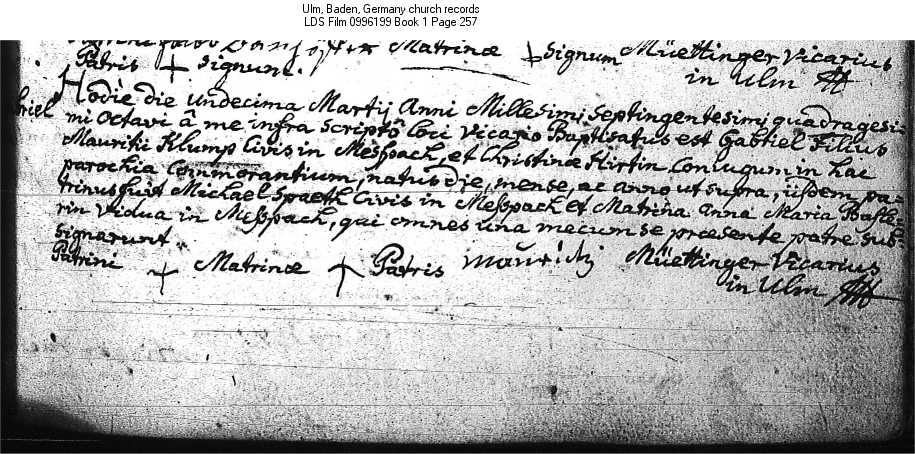 Ulm, Baden, Germany church records
LDS Film 0996199 Book 1 Page 257
Matrinæ + Signum Müettinger Vicarius
Patris + Signum. in Ulm
Hodie die undecima Martij Anni Millesimi Septingentesimi quadragesi-
riel mi octavi â me infra scripto loci Vicario Baptisatus est Gabriel Filius
Mauritii Klump Civis in Meßpach, et Christinæ Hirtin Conlugum in hac
parochia Commorantium, natus die, mense, ac anno ut supra, iisdem pa-
trinus fuit Michael Spaeth Civis in Meßpach et Matrina Anna Maria
rin Vidua in Meßpach, qui omnes una mecum se præsente patre sub-
signarunt.
Patrini + Matrinæ + Patris mauritzi Müettinger Vicarius
in Ulm